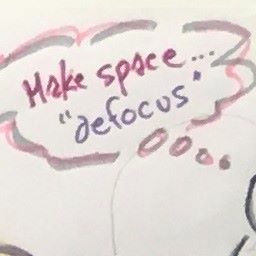 Make space...
"defocus"